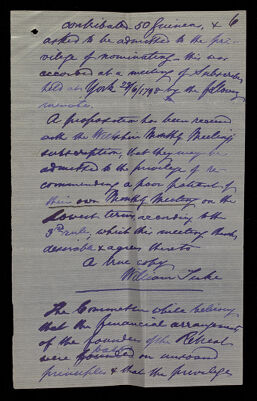 6
contributed 50 Guineas, &
asked to be admitted to the pri-
vilege of nominating - this was
accorded at a meeting of Subscribers
held at York 24/6/1798 by the following
minute.
A proposition has been received
with the Wiltshire Monthly Meeting's
subscription, that they may be
admitted to the privilege of re-
commending a poor patient of
their own Monthly Meeting on the
lowest terms, according to the
3rd rule, which this meeting thinks
desirable & agrees thereto
A true copy
William Tuke
The Committee while believing
that the financial arrangements
of the founders of the Retreat
were based on unsound
principles & that the privilege